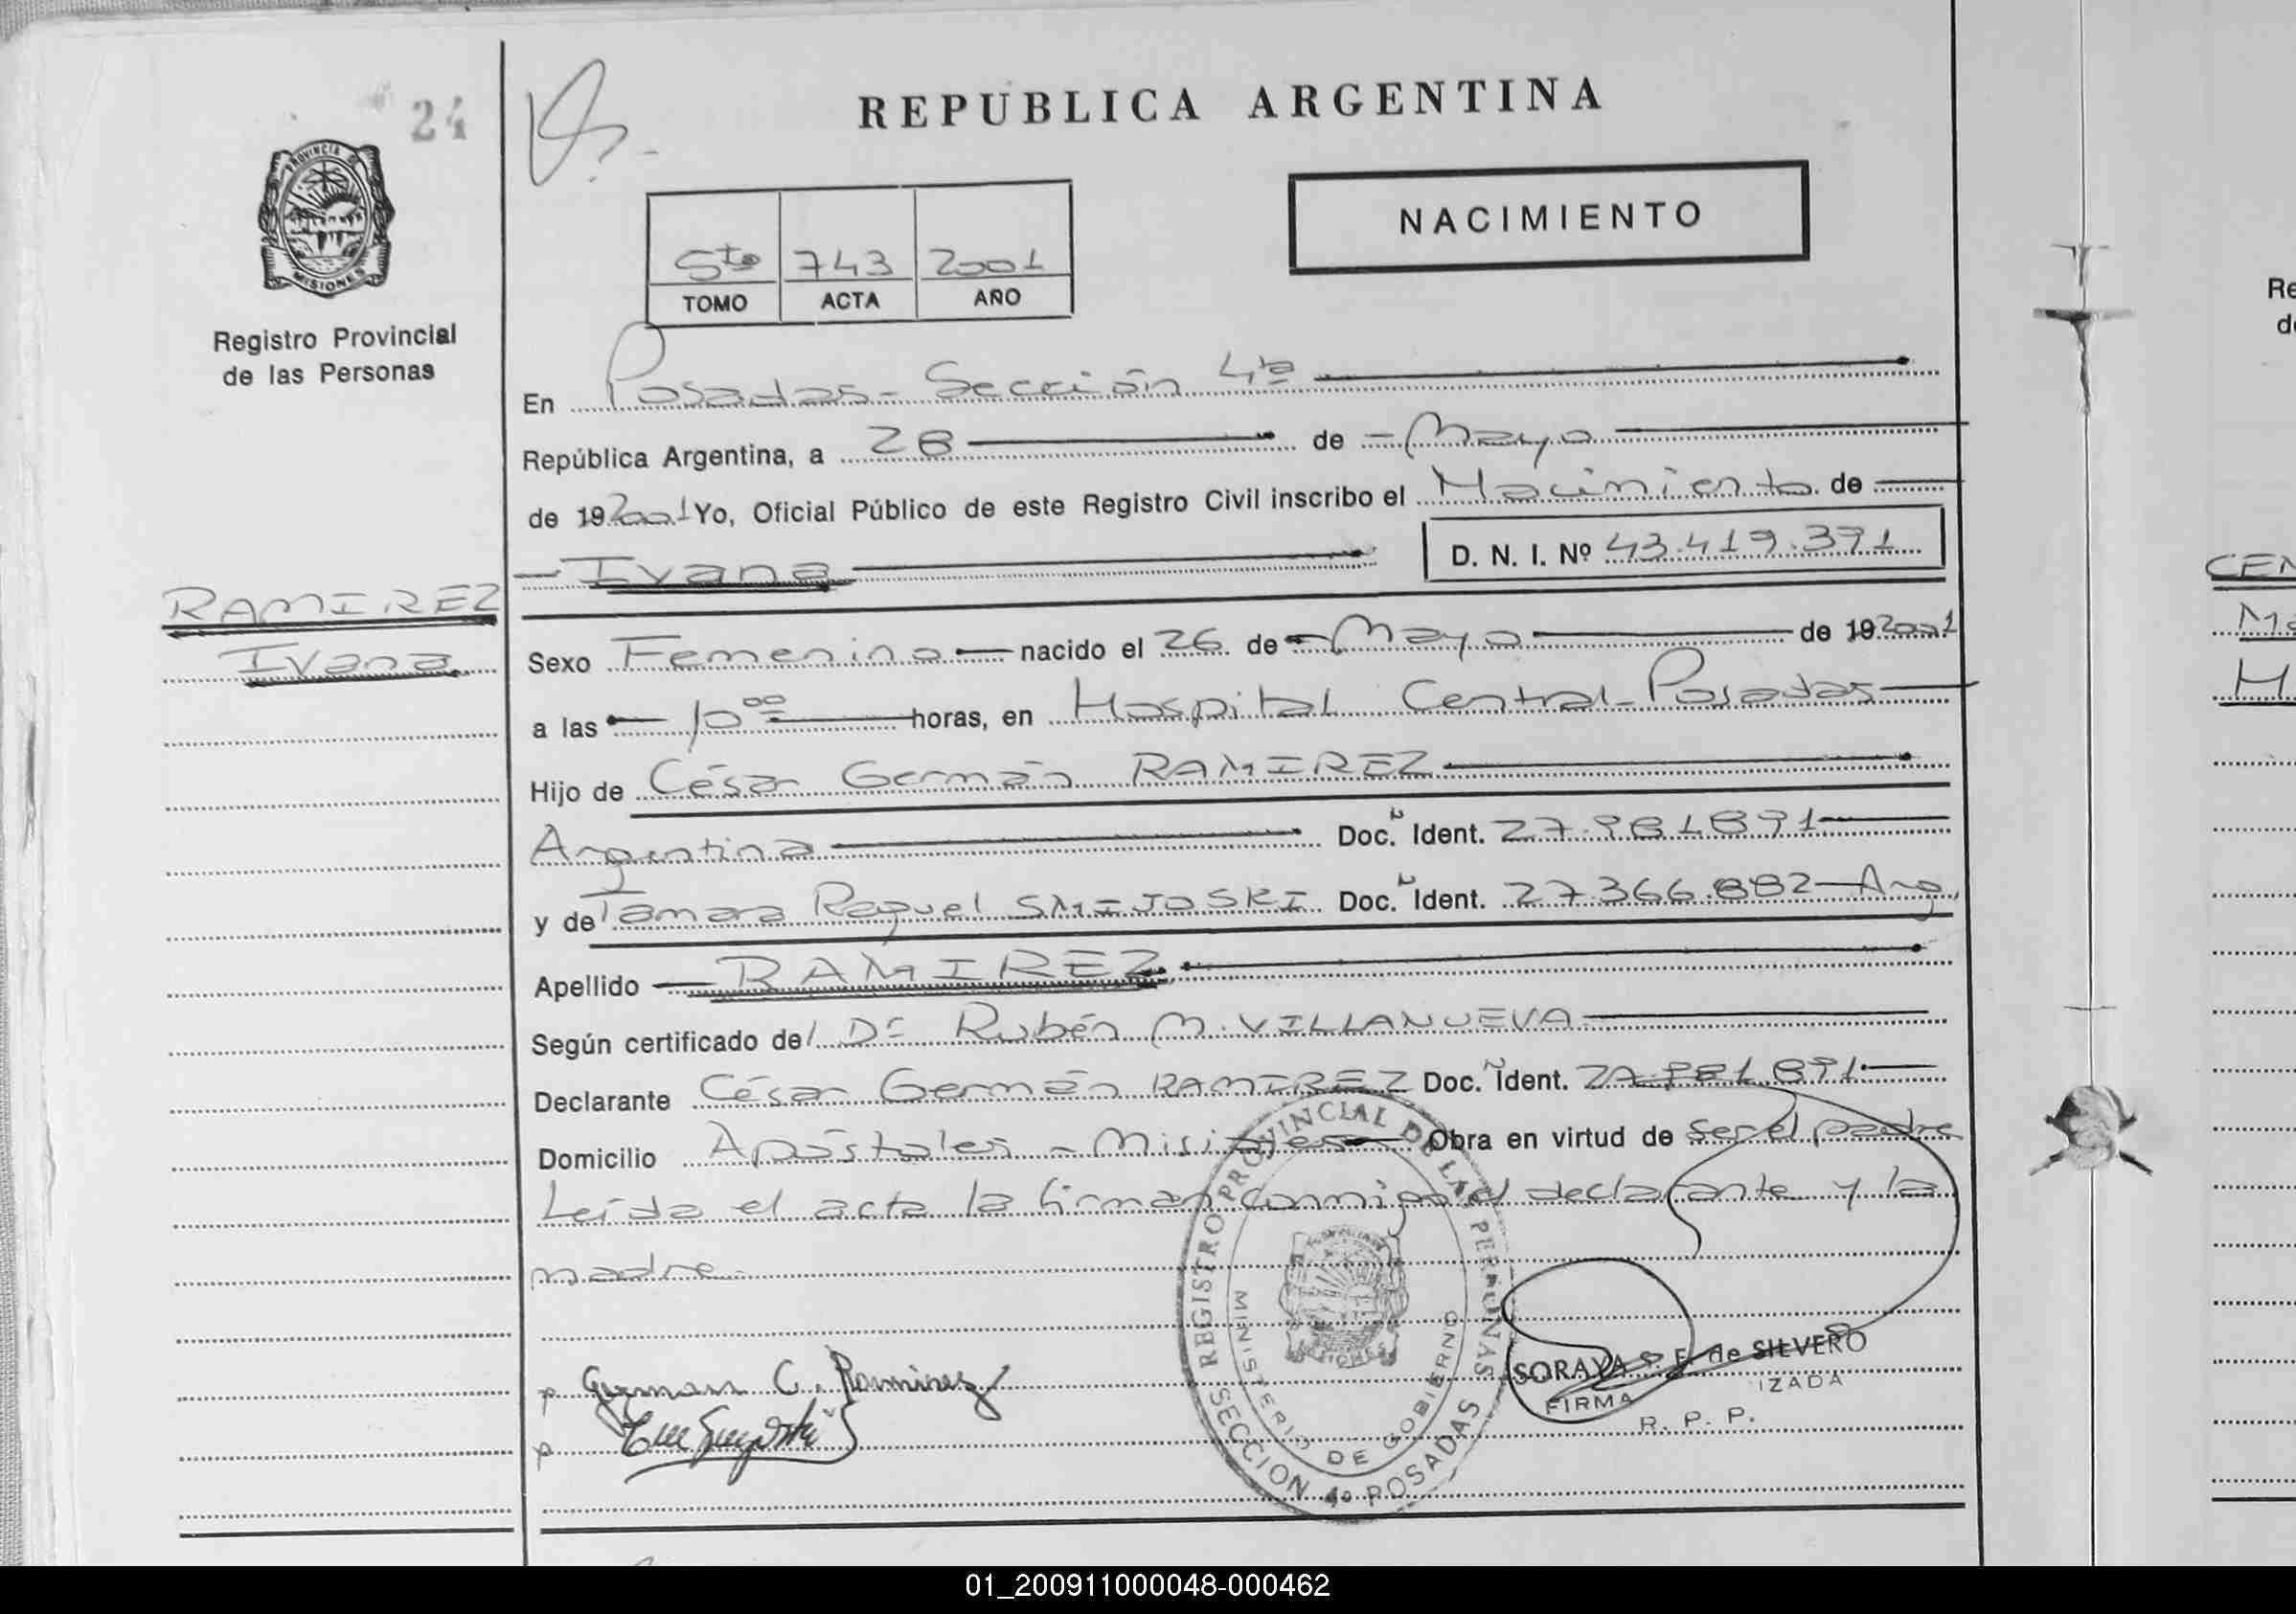 24
REPUBLICA ARGENTINA
PROVINCIA DE MISIONES
Registro Provincial
de las Personas
NACIMIENTO
5to 743 2001
TOMO ACTA AÑO
En Posadas - Sección 4ta
República Argentina, a 28 de Mayo
de 19 2001 Yo, Oficial Público de este Registro Civil inscribo el Nacimiento de
Ivana D. N. I. Nº 43.419.371
RAMIREZ
Ivana
Sexo Femenino nacido el 26 de Mayo de 19 2001
a las 10 00 horas, en Hospital Central - Posadas
Hijo de César Germán RAMIREZ
Argentina Doc. Ident. 27.981.891
y de Tamara Raquel SMIJOSKI Doc. Ident. 27.366.882 - Arg.
Apellido RAMIREZ
Según certificado del Dr Rubén M. VILLANUEVA
Declarante César Germán RAMIREZ Doc. Ident. 27.981.891
Domicilio Apóstoles - Misiones Obra en virtud de ser el padre
Leída el acta la firman conmigo el declarante y la
madre
REGISTRO PROVINCIAL DE LAS PERSONAS
MINISTERIO DE GOBIERNO
SECCION 4º POSADAS
p German C. Ramirez
p
SORAYA S. F. de SILVERO
FIRMA IZADA
R. P. P.
Re
de
CEN
Ma
M
01_200911000048-000462